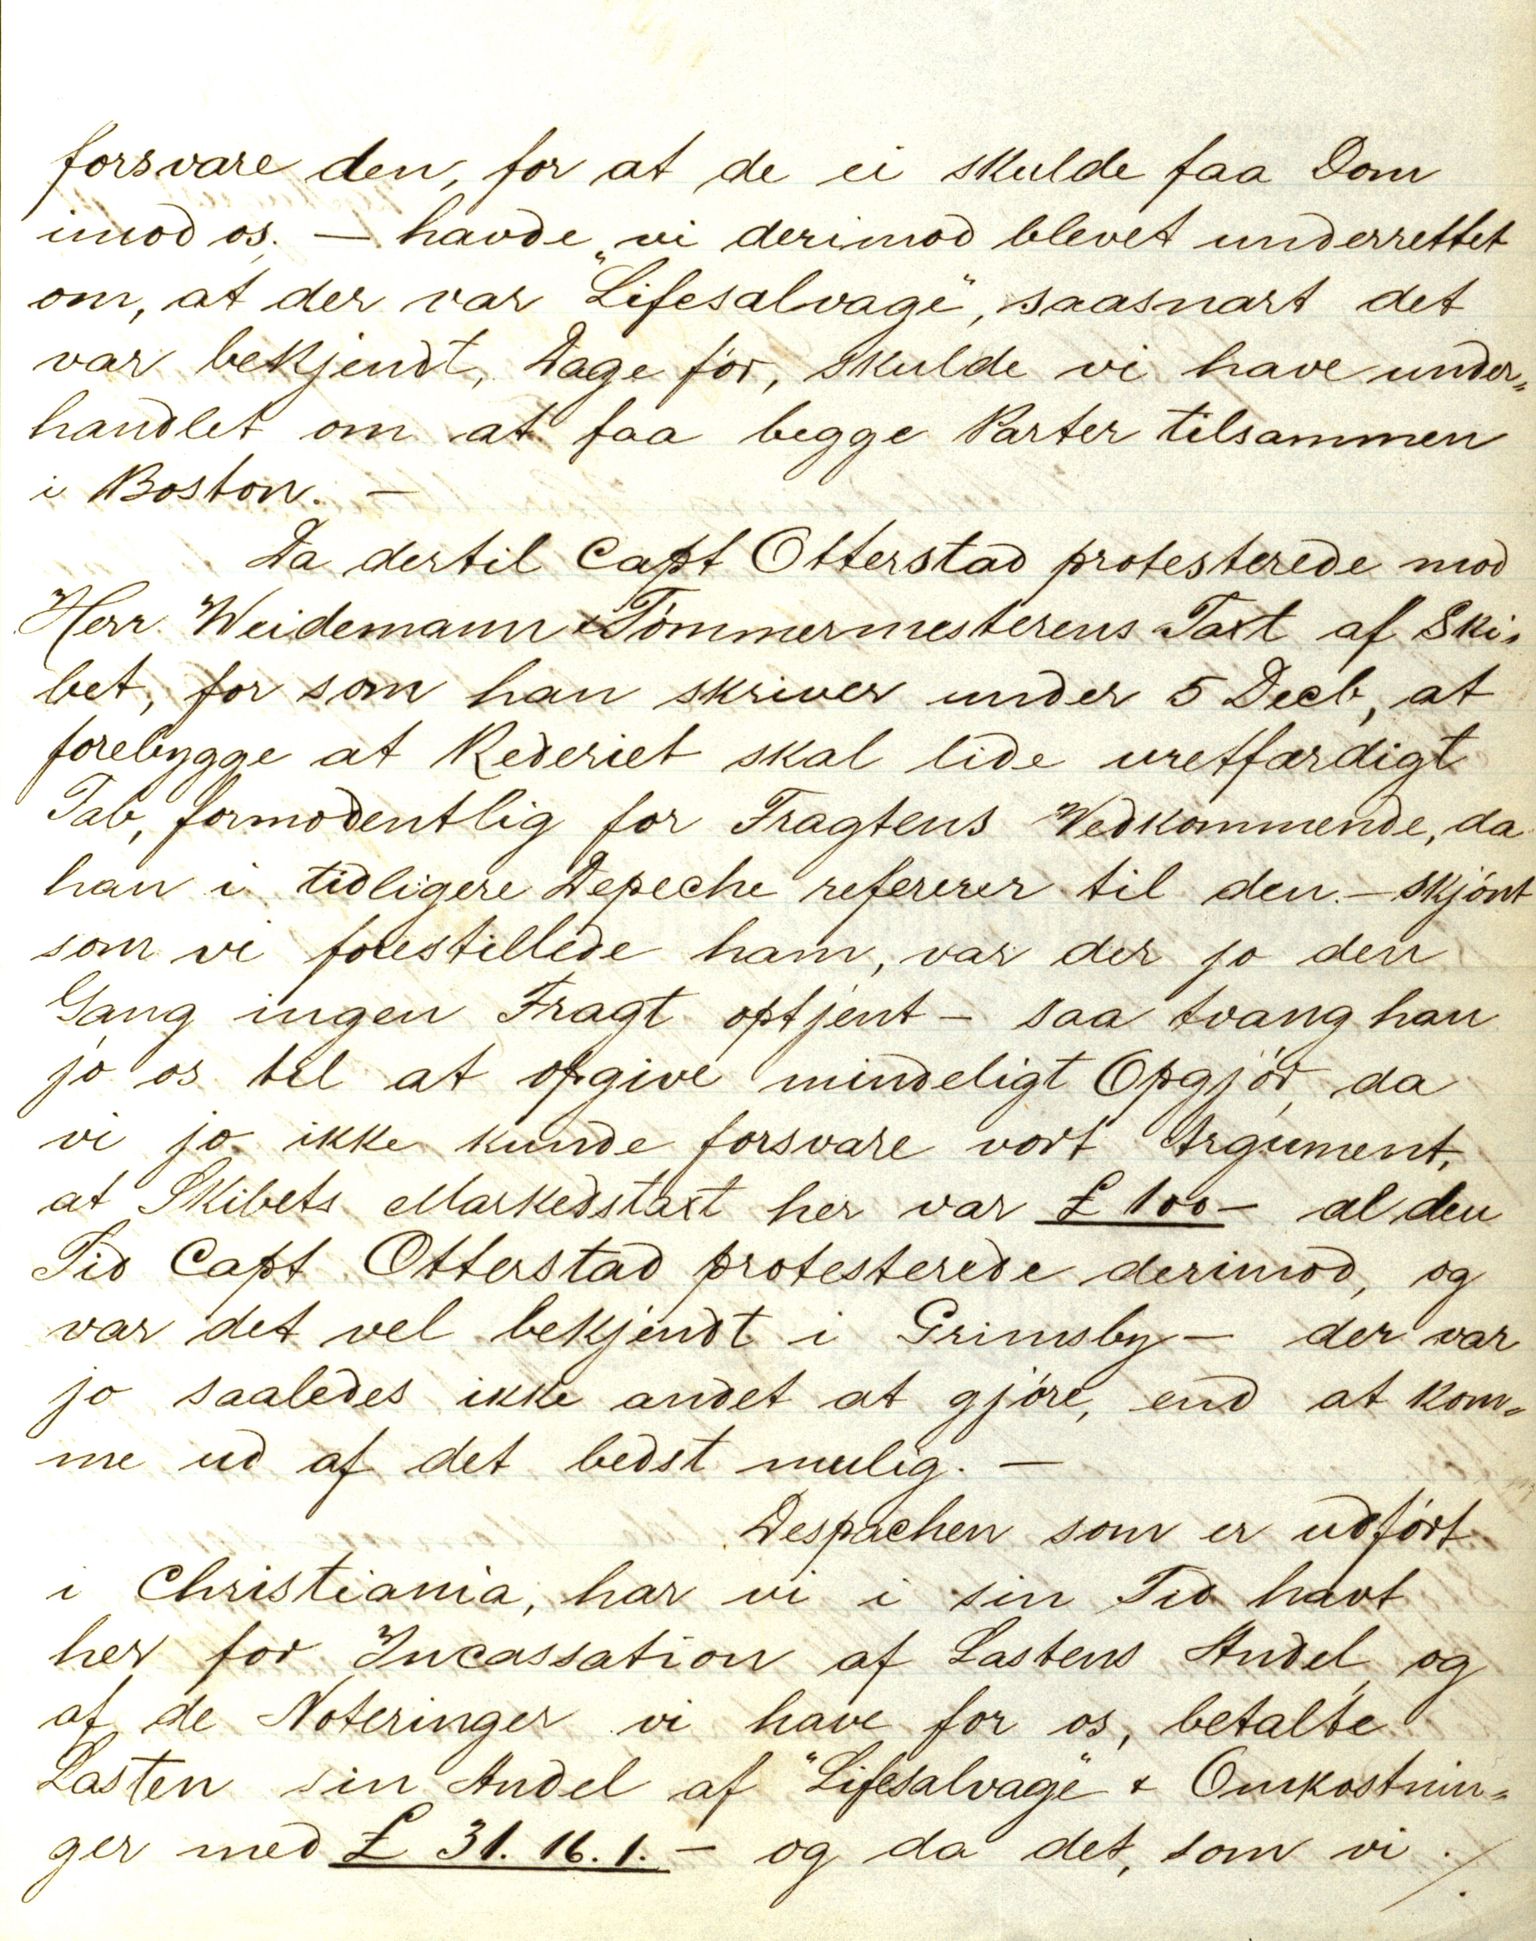 forsvare den, for at de ei skulde faa Dom
imod os. — havde vi derimod blevet underrettet
om, at der var "Lifesalvage", saasnart det
var bekjendt, Dage før, skulde vi have under=
handlet om at faa begge Parter tilsammen
i Boston. —
Da dertil Capt Otterstad protesterede mod
Herr Weidemann & Tømmermesterens Taxt af Ski=
bet, for som han skriver under 5 Decb, at
forebygge at Rederiet skal lide uretfærdigt
Tab, formodentlig for Fragtens Vedkommende, da
han i tidligere Depeche refererer til den. — skjønt
som vi forestillede ham, var der jo den
Gang ingen Fragt optjent — saa tvang han
jo os til at opgive mindeligt Opgjør, da
vi jo ikke kunde forsvare vort Argument,
at Skibets Markedstaxt her var £ 100 — al den
Tid Capt Otterstad protesterede derimod, og
var det vel bekjendt i Grimsby — der var
jo saaledes ikke andet at gjøre, end at kom=
me ud af det bedst mulig. —
Despachen som er udført
i Christiania, har vi i sin Tid havt
her for Incassation af Lastens Andel, og
af de Noteringer vi have for os, betalte
Lasten sin Andel af "Lifesalvage" & Omkostnin=
ger med £ 31. 16. 1. — og da det, som vi ./.